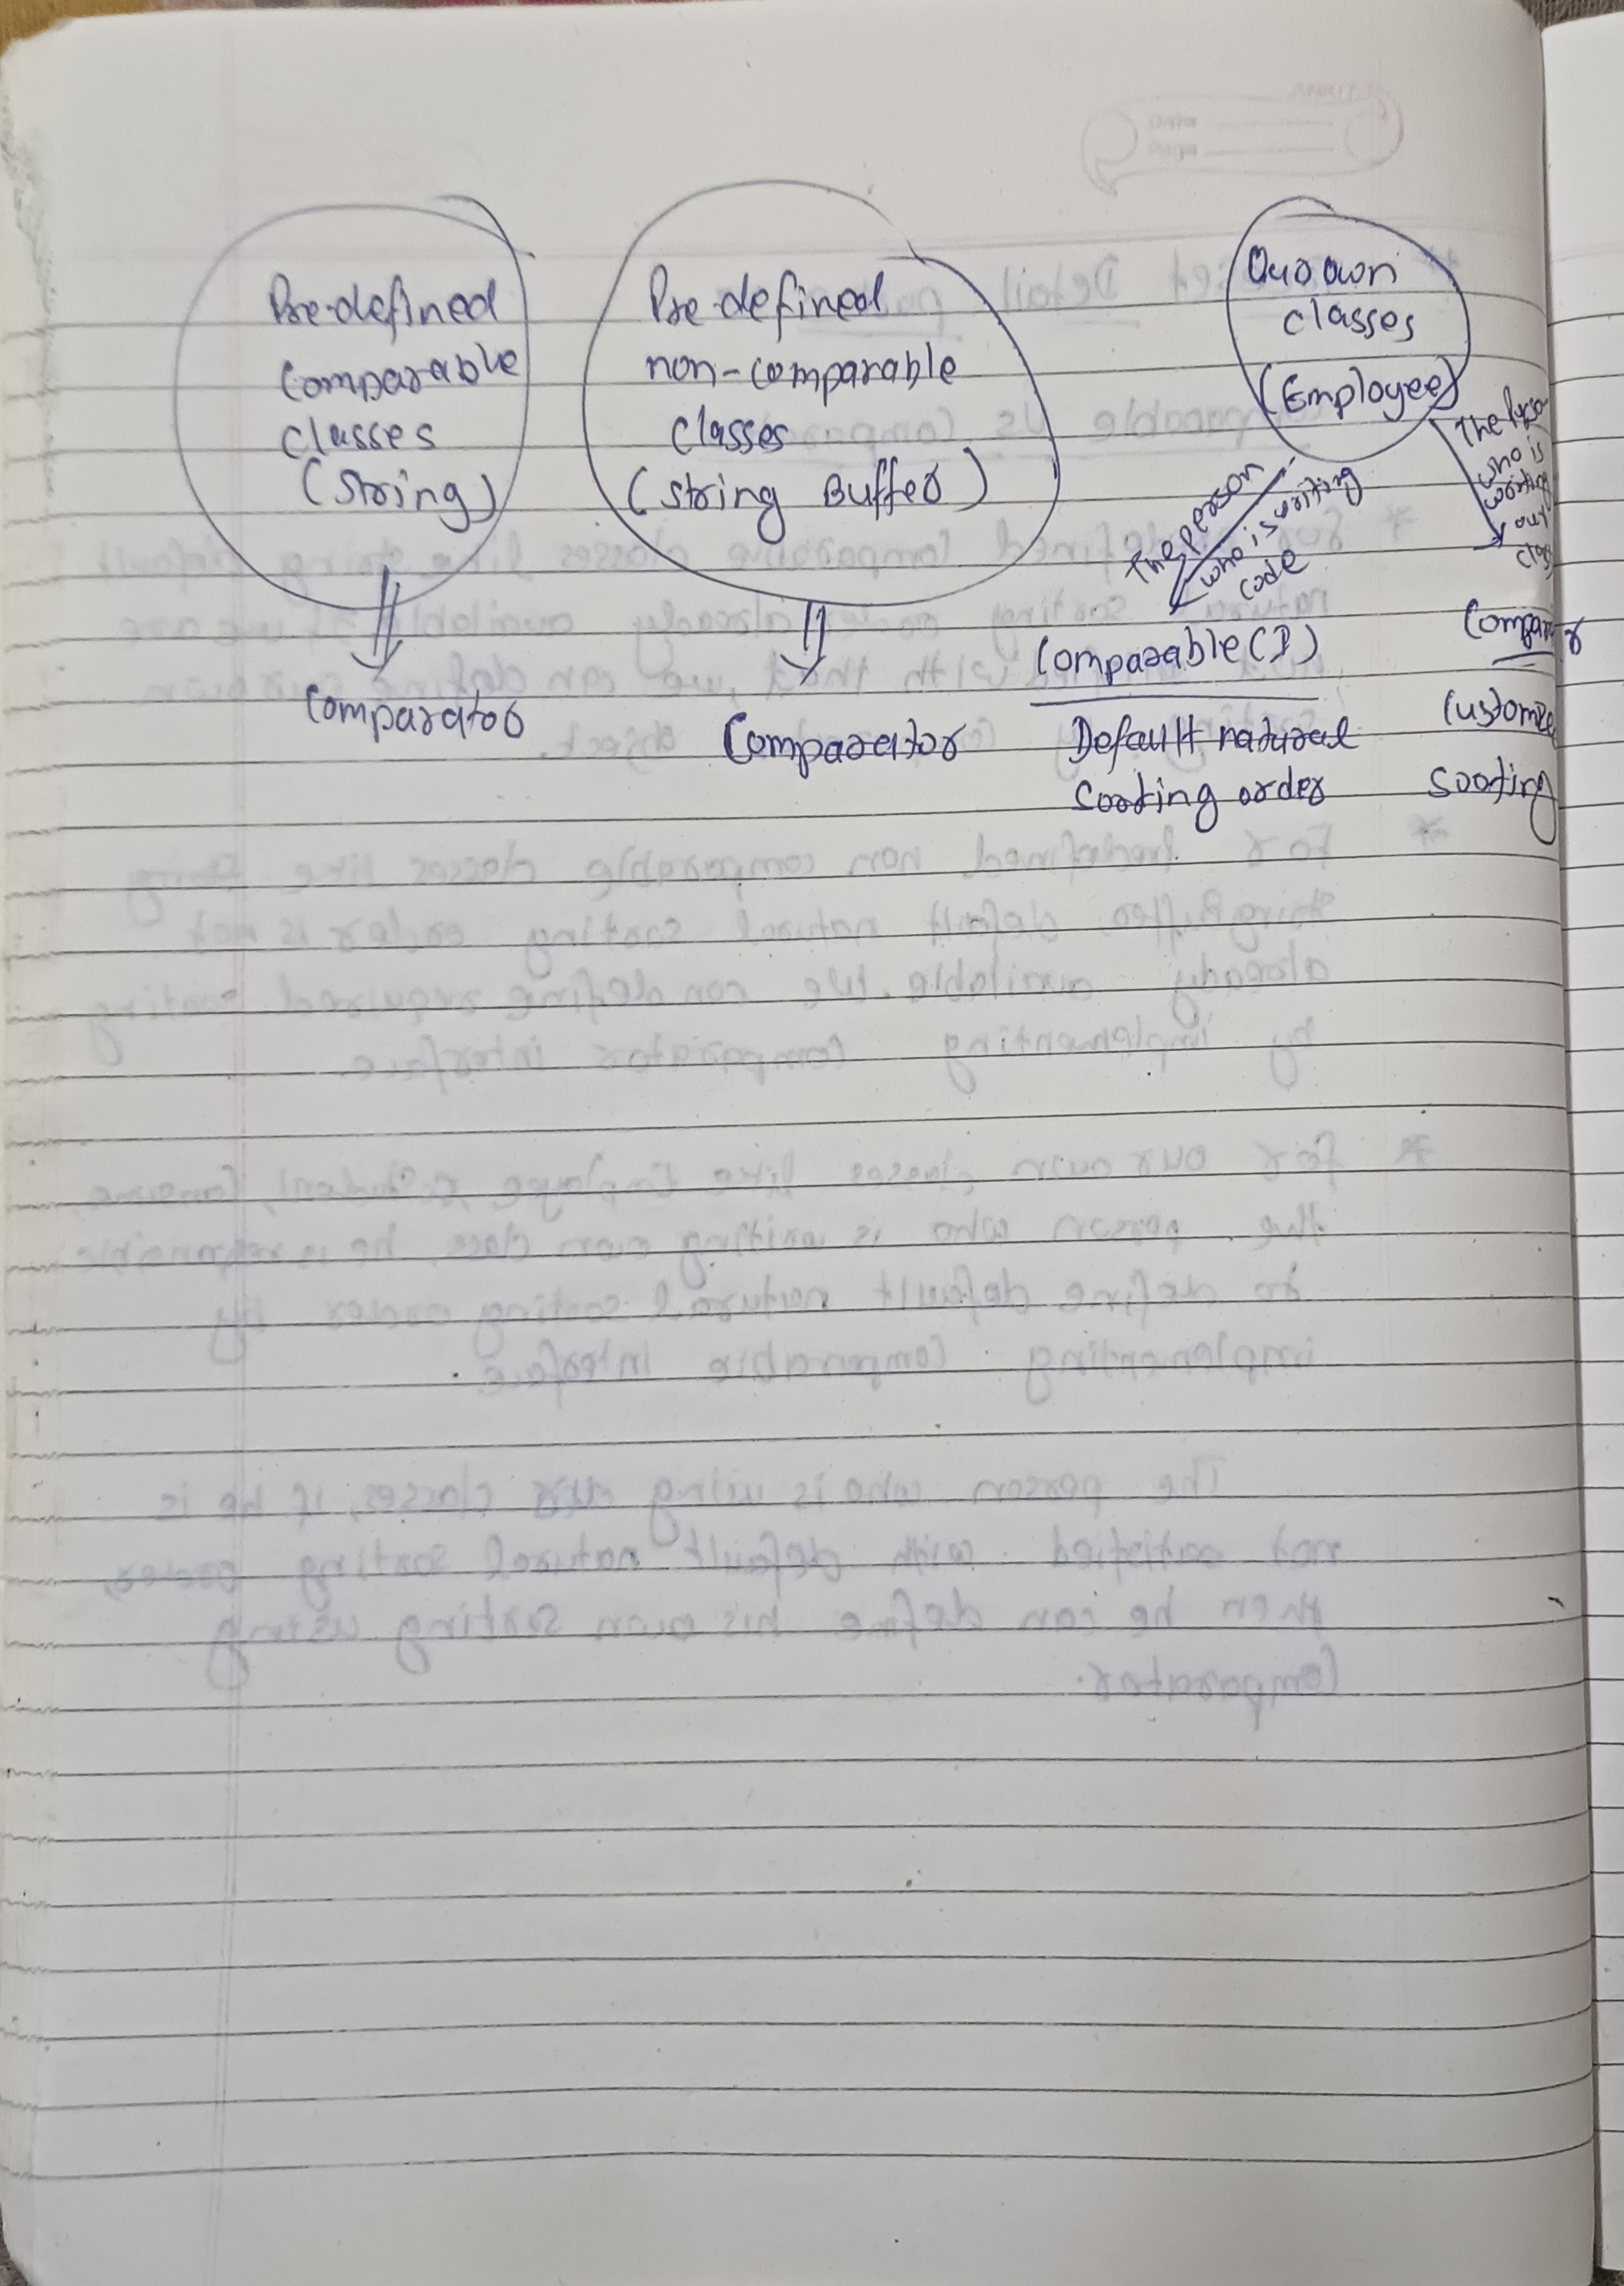 Pre-defined
Comparable
classes
(String)
Comparator
Pre-defined
non-comparable
classes
(string Buffer)
Comparator
Our own
classes
(Employee)
The person
who is writing
code
Comparable(I)
Default natural
sorting order
The Person
who is
writing
our
class
Comparator
Customize
sorting